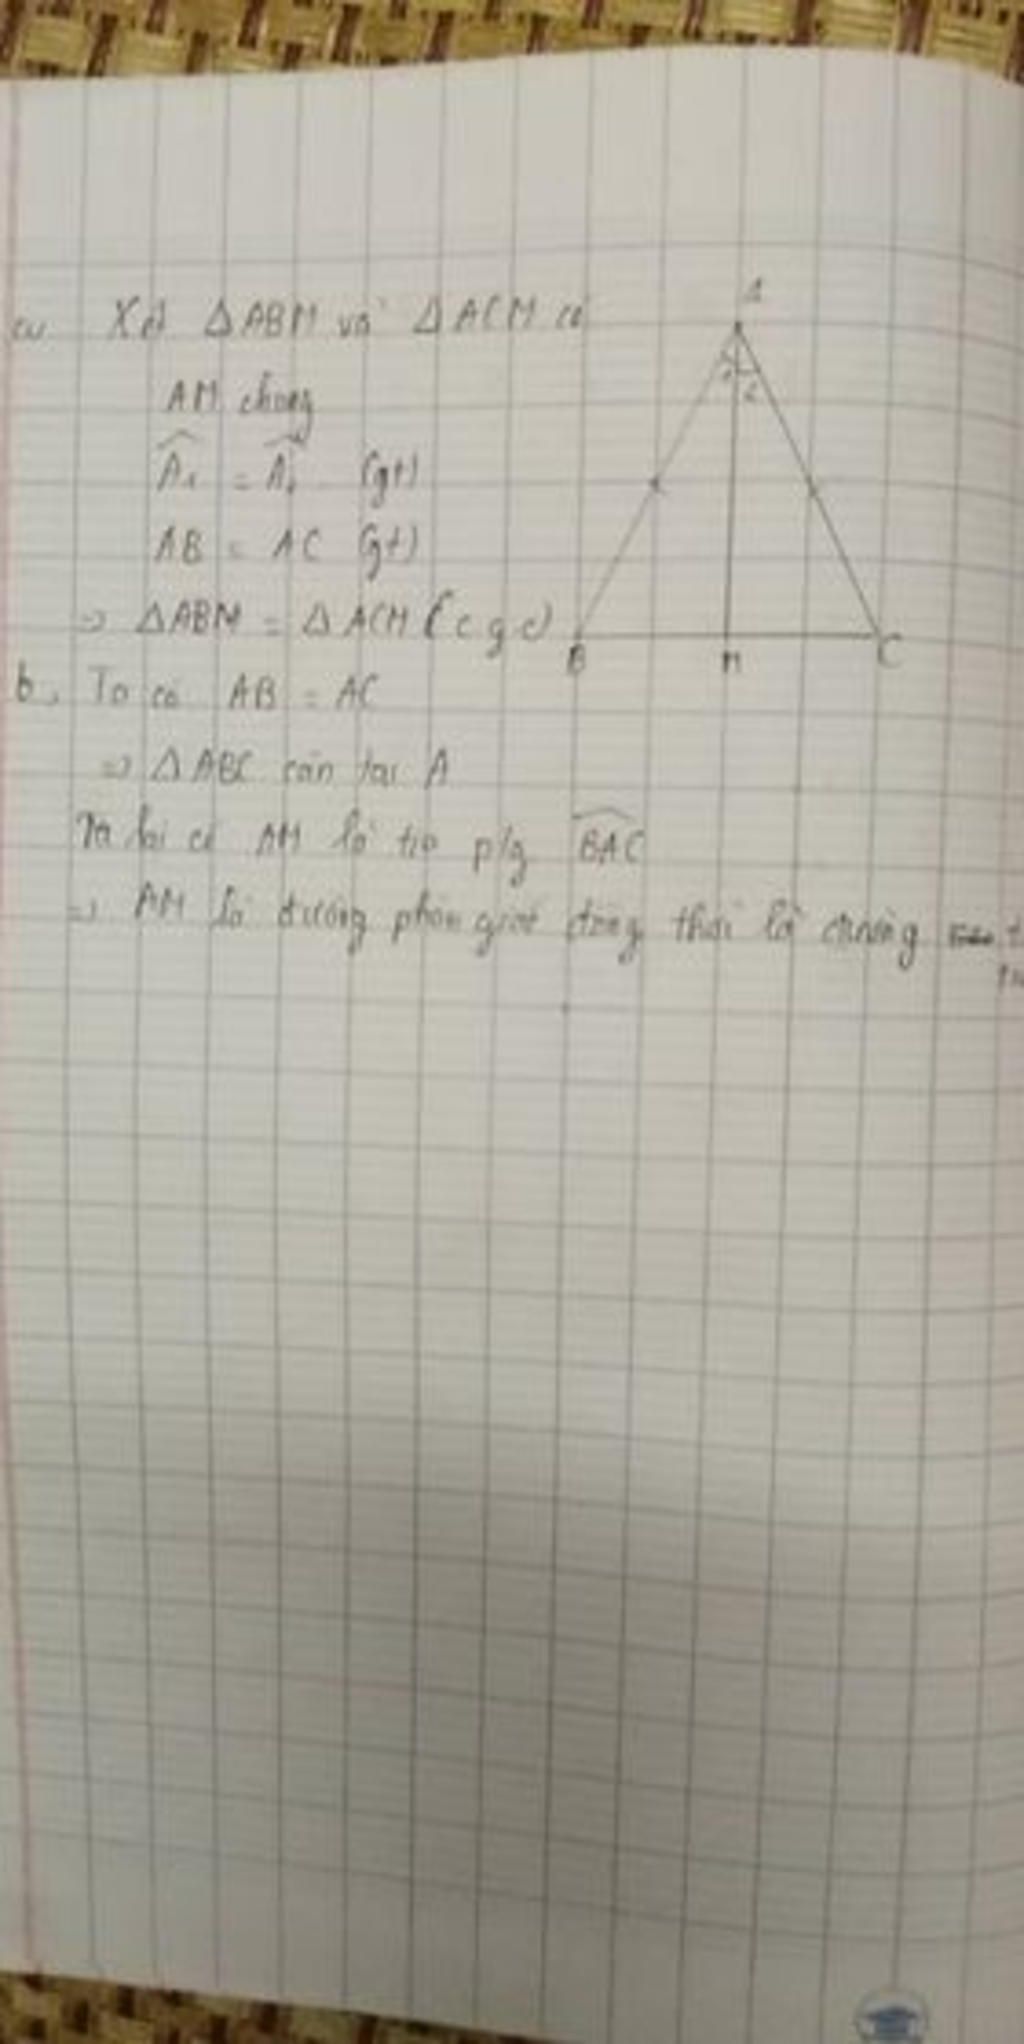 a, Xét ΔABM và ΔACM có
AM chung
Â₁ = Â₂ (gt)
AB = AC (gt)
=> ΔABM = ΔACM (c g c)
b, Ta có AB = AC
=> ΔABC cân tại A
Ta lại có AM là tia p/g B̂AC
=> AM là đường phân giác đồng thời là đường
A
1 2
B M C